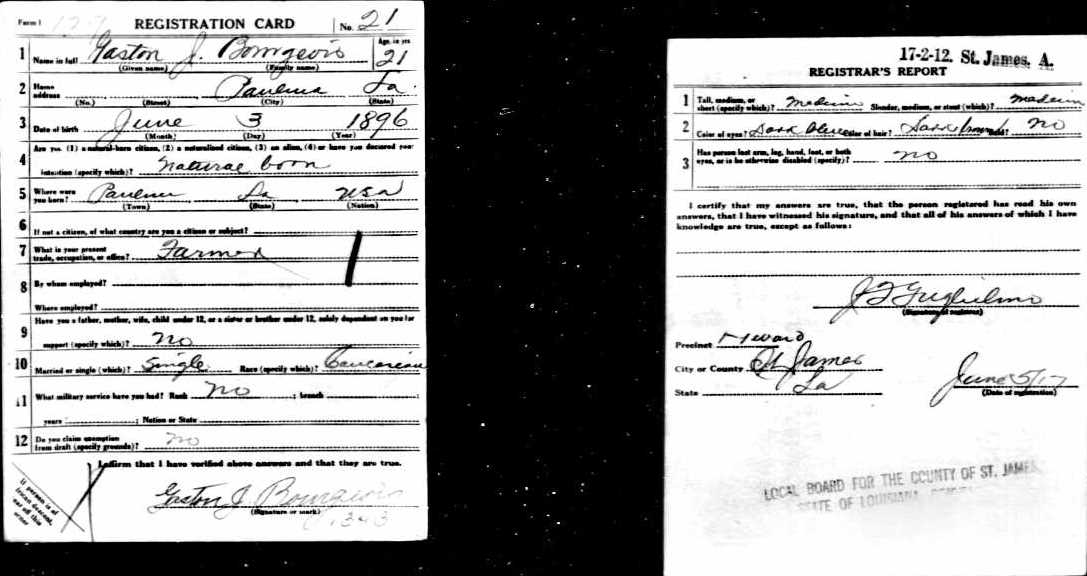 Form 1 REGISTRATION CARD No. 21
1 Name in full Gaston J. Bourgeois Age, in yrs. 21
(Given name) (Family name)
2 Home address Paulina La.
(No.) (Street) (City) (State)
3 Date of birth June 3 1896
(Month) (Day) (Year)
4 Are you (1) a natural-born citizen, (2) a naturalized citizen, (3) an alien, (4) or have you declared your
intention (specify which)? Natural born
5 Where were you born? Paulina La USA
(Town) (State) (Nation)
6 If not a citizen, of what country are you a citizen or subject?
7 What is your present trade, occupation, or office? Farmer
8 By whom employed?
Where employed?
9 Have you a father, mother, wife, child under 12, or a sister or brother under 12, solely dependent on you for
support (specify which)? No
10 Married or single (which)? Single Race (specify which)? Caucasian
11 What military service have you had? Rank No ; branch ;
years ; Nation or State
12 Do you claim exemption from draft (specify grounds)? No
I affirm that I have verified above answers and that they are true.
Gaston J. Bourgeois
(Signature or mark)
If person is of
African descent,
tear off this
corner
17-2-12. St. James. A.
REGISTRAR'S REPORT
1 Tall, medium, or short (specify which)? Medium Slender, medium, or stout (which)? Medium
2 Color of eyes? Dark blue Color of hair? Dark brown Bald? No
3 Has person lost arm, leg, hand, foot, or both
eyes, or is he otherwise disabled (specify)? no
I certify that my answers are true, that the person registered has read his own
answers, that I have witnessed his signature, and that all of his answers of which I have
knowledge are true, except as follows:
J F Guglielmo
(Signature of registrar)
Precinct ward
City or County St James
State La June 5/17
(Date of registration)
LOCAL BOARD FOR THE COUNTY OF ST. JAMES
STATE OF LOUISIANA